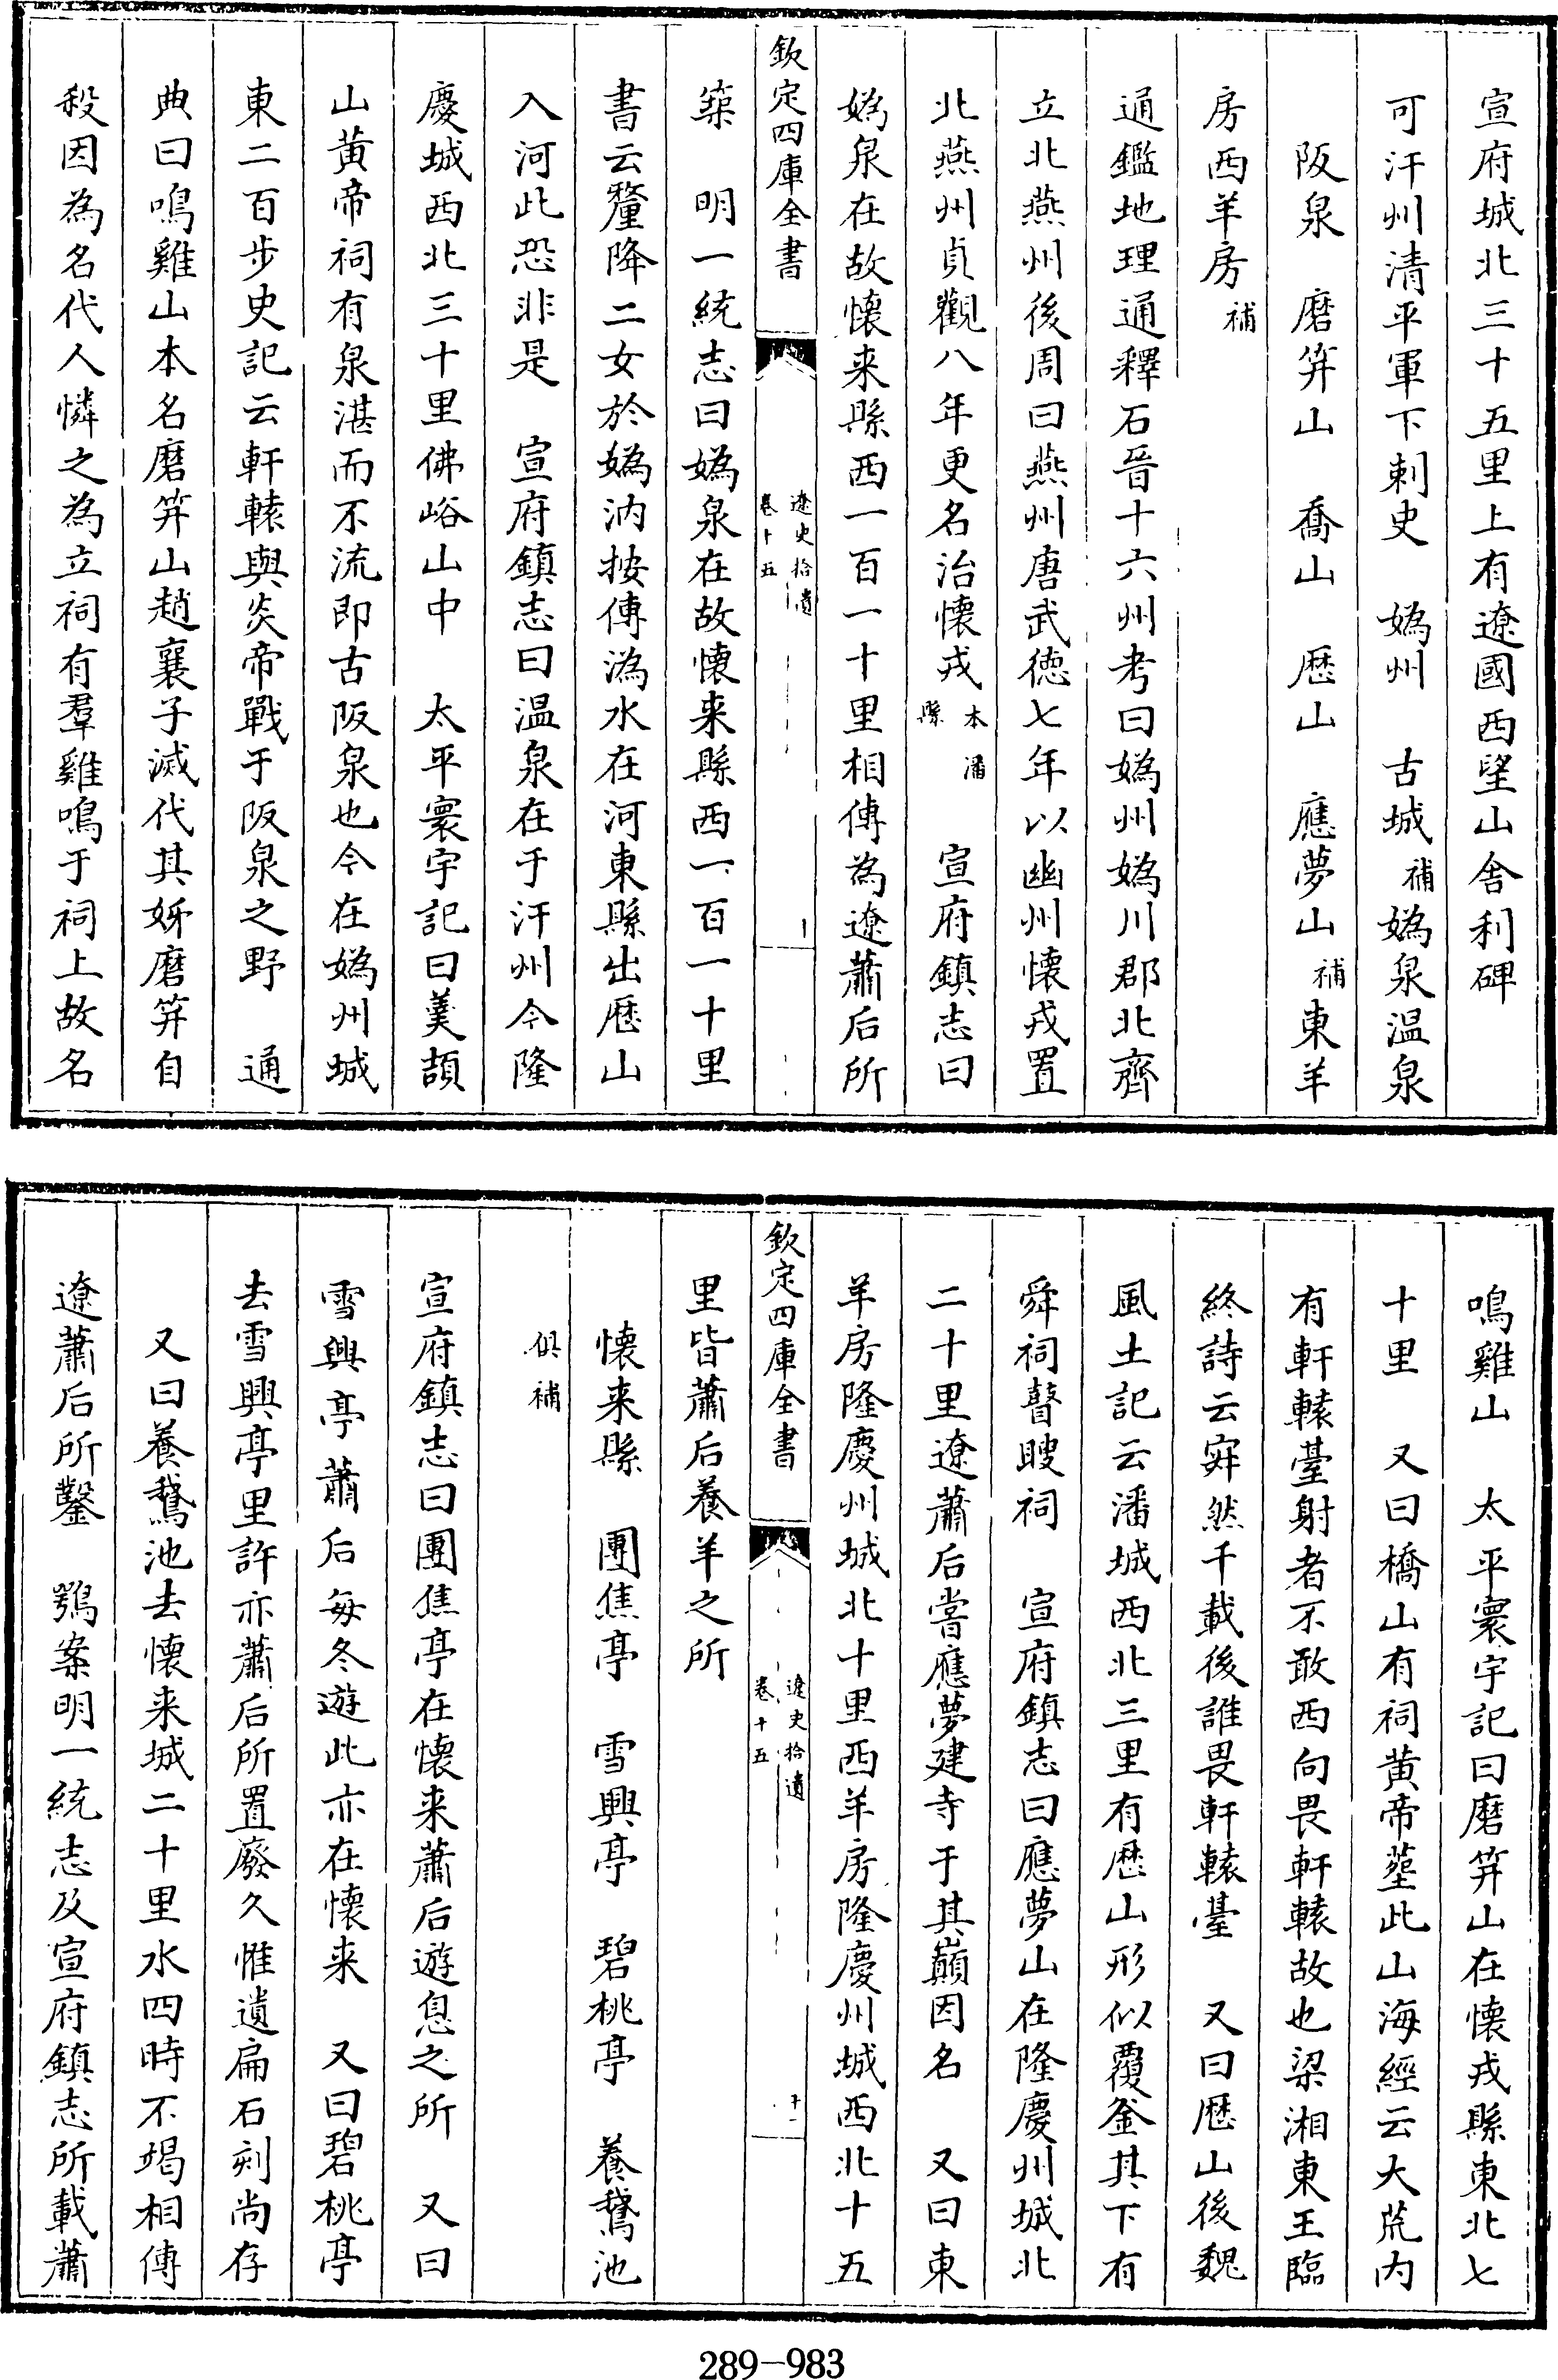 宣府城北三十五里上有遼國西望山舍利碑
可汗州清平軍下刺史　媯州　古城補媯泉温泉
阪泉　磨笄山　喬山　歷山　應夢山補東羊
房西羊房補
通鑑地理通釋石晉十六州考曰媯州媯川郡北齊
立北燕州後周曰燕州唐武徳七年以幽州懷戎置
北燕州貞觀八年更名治懷戎本潘縣　宣府鎮志曰
媯泉在故懷来縣西一百一十里相傳為遼蕭后所
欽定四庫全書
遼史拾遺
卷十五
十
築　明一統志曰媯泉在故懷来縣西一百一十里
書云釐降二女於媯汭按傳溈水在河東縣出歴山
入河此恐非是　宣府鎮志曰温泉在于汗州今隆
慶城西北三十里佛峪山中　太平寰宇記曰羹頡
山黄帝祠有泉湛而不流即古阪泉也今在媯州城
東二百步史記云軒轅與炎帝戰于阪泉之野　通
典曰鳴雞山本名磨笄山趙襄子滅代其姊磨笄自
殺因為名代人憐之為立祠有羣雞鳴于祠上故名
鳴雞山　太平寰宇記曰磨笄山在懷戎縣東北七
十里　又曰橋山有祠黄帝塟此山海經云大荒内
有軒轅臺射者不敢西向畏軒轅故也梁湘東王臨
終詩云寂然千載後誰畏軒轅臺　又曰歴山後魏
風土記云潘城西北三里有歴山形似覆釜其下有
舜祠瞽瞍祠　宣府鎮志曰應夢山在隆慶州城北
二十里遼蕭后嘗應夢建寺于其巔因名　又曰東
羊房隆慶州城北十里西羊房隆慶州城西北十五
欽定四庫全書
遼史拾遺
卷十五
十一
里皆蕭后養羊之所
懷来縣　團焦亭　雪興亭　碧桃亭　養鵞池
俱補
宣府鎮志曰團焦亭在懷来蕭后遊息之所　又曰
雪興亭蕭后每冬遊此亦在懷来　又曰碧桃亭
去雪興亭里許亦蕭后所置廢久惟遺扁石刻尚存
又曰養鵞池去懷来城二十里水四時不竭相傳
遼蕭后所鑿　鶚案明一統志及宣府鎮志所載蕭
289-983